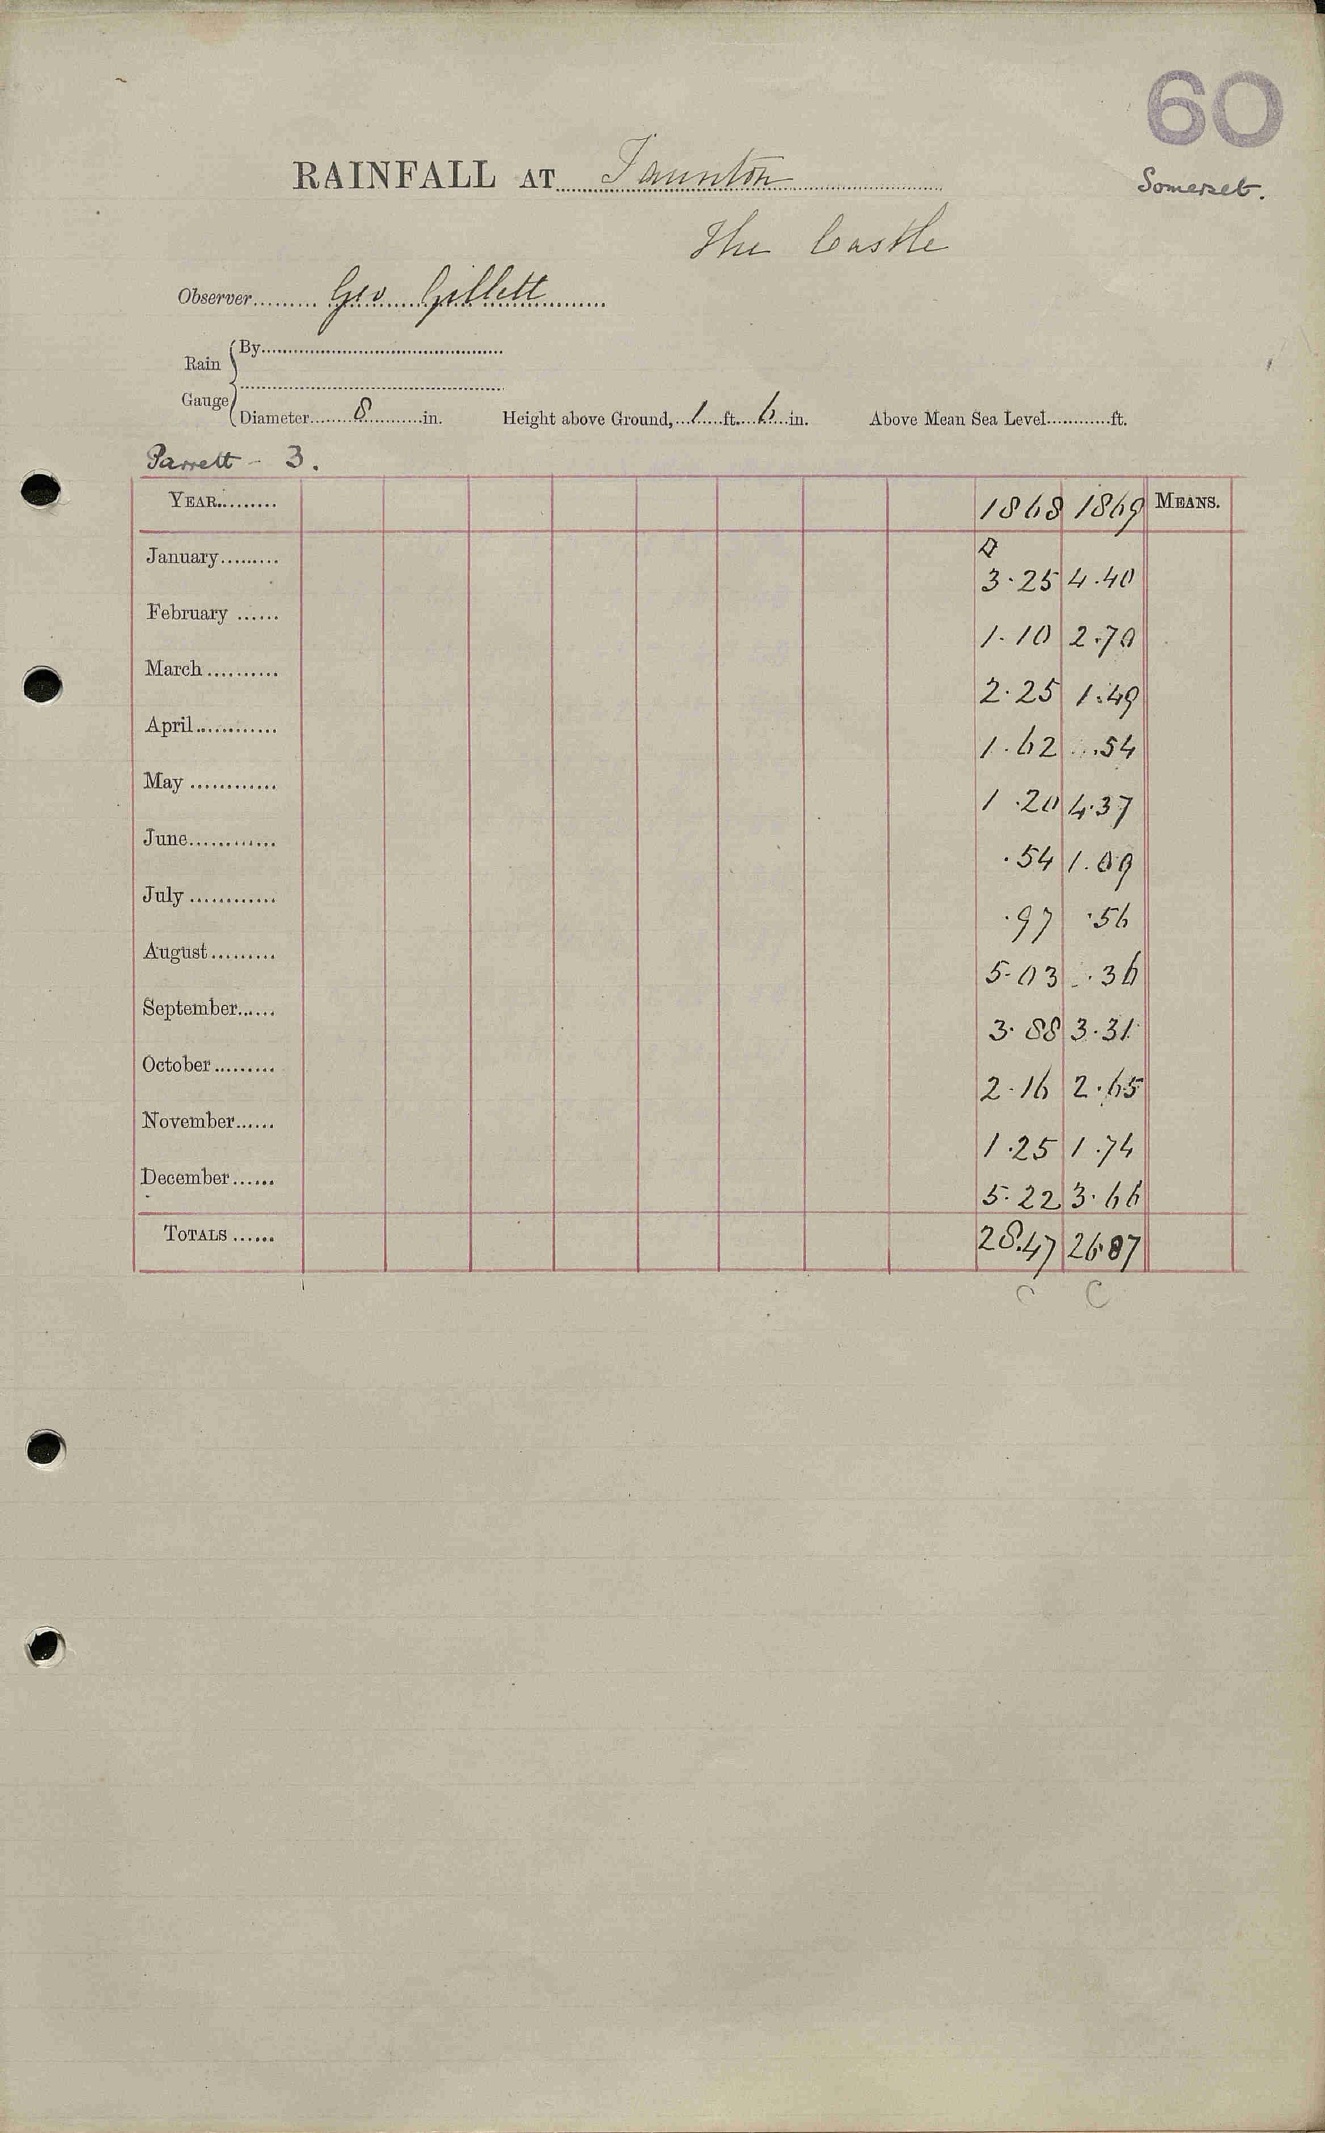 60
Somerset.
RAINFALL AT Taunton
The Castle
Observer Geo Gillett
Rain Gauge
By
Diameter 8 in. Height above Ground, 1 ft. 6 in. Above Mean Sea Level ft.
Parrett - 3.
YEAR 1868 1869 MEANS.
January 3.25 4.40
February 1.10 2.70
March 2.25 1.49
April 1.62 .54
May 1.20 4.37
June .54 1.09
July .97 .56
August 5.03 .36
September 3.88 3.31
October 2.16 2.65
November 1.25 1.74
December 5.22 3.66
TOTALS 28.47 26.87
C C